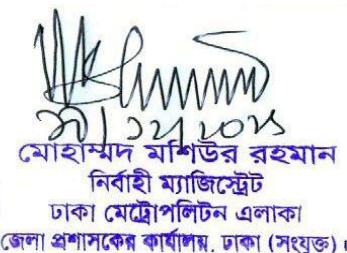 মোহাম্মদ মশিউর রহমান
নির্বাহী ম্যাজিস্ট্রেট
ঢাকা মেট্রোপলিটন এলাকা
জেলা প্রশাসকের কার্যালয়, ঢাকা (সংযুক্ত)।